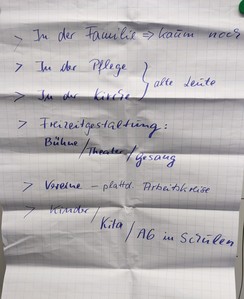 > In der Familie => kaum noch
> In der Pflege
> In der Kirche } alte Leute
> Freizeitgestaltung:
Bühne/Theater/Gesang
> Vereine - plattd. Arbeitskreise
> Kinder/
Kita/AG in Schulen